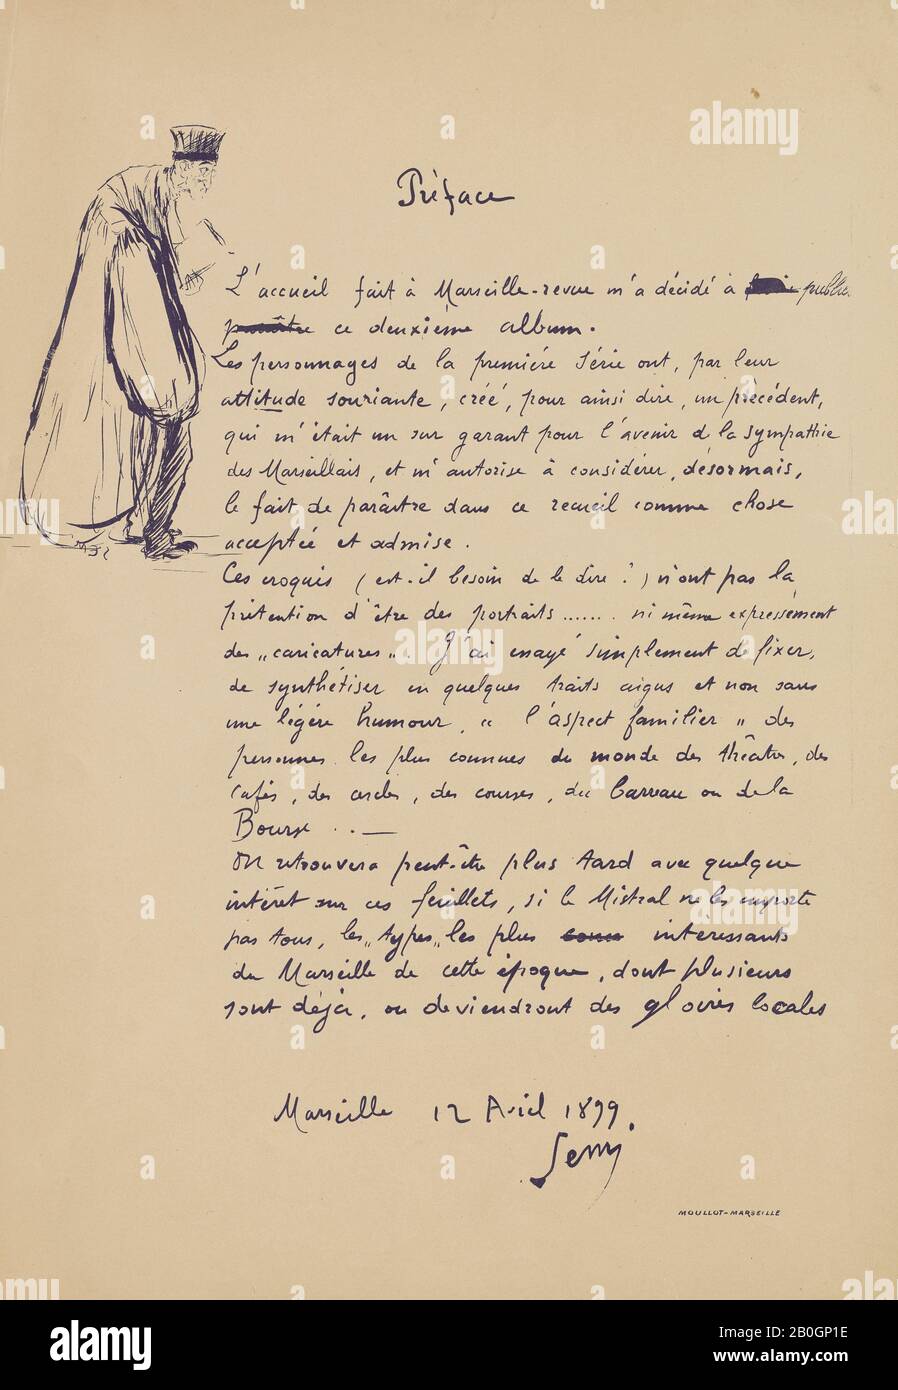 Préface
L'accueil fait à Marseille-revue m'a décidé à publier
paraître ce deuxième album.
Les personnages de la première Série ont, par leur
attitude souriante, créé, pour ainsi dire, un précédent,
qui m'était un sur garant pour l'avenir d la sympathie
des Marseillais, et m'autorise à considérer, désormais,
le fait de paraître dans ce recueil comme chose
acceptée et admise.
Ces croquis (est-il besoin de le dire?) n'ont pas la
prétention d'être des portraits...... ni même expressément
des „caricatures„. J'ai essayé simplement de fixer,
de synthétiser en quelques traits aigus et non sans
une légère humour, „ l'aspect familier „ des
personnes les plus connues du monde des théâtres, des
Cafés, des cercles, des courses, du Barreau ou de la
Bourse . . —
On retrouvera peut-être plus tard avec quelque
intérêt sur ces feuillets, si le Mistral ne les emporte
pas tous, les „types„ les plus intéressants
du Marseille de cette époque, dont plusieurs
sont déjà, ou deviendront des gloires locales
Marseille 12 Avril 1899.
Sem
MOULLOT-MARSEILLE
alamy
alamy
Image ID: 2B0GP1E
www.alamy.com